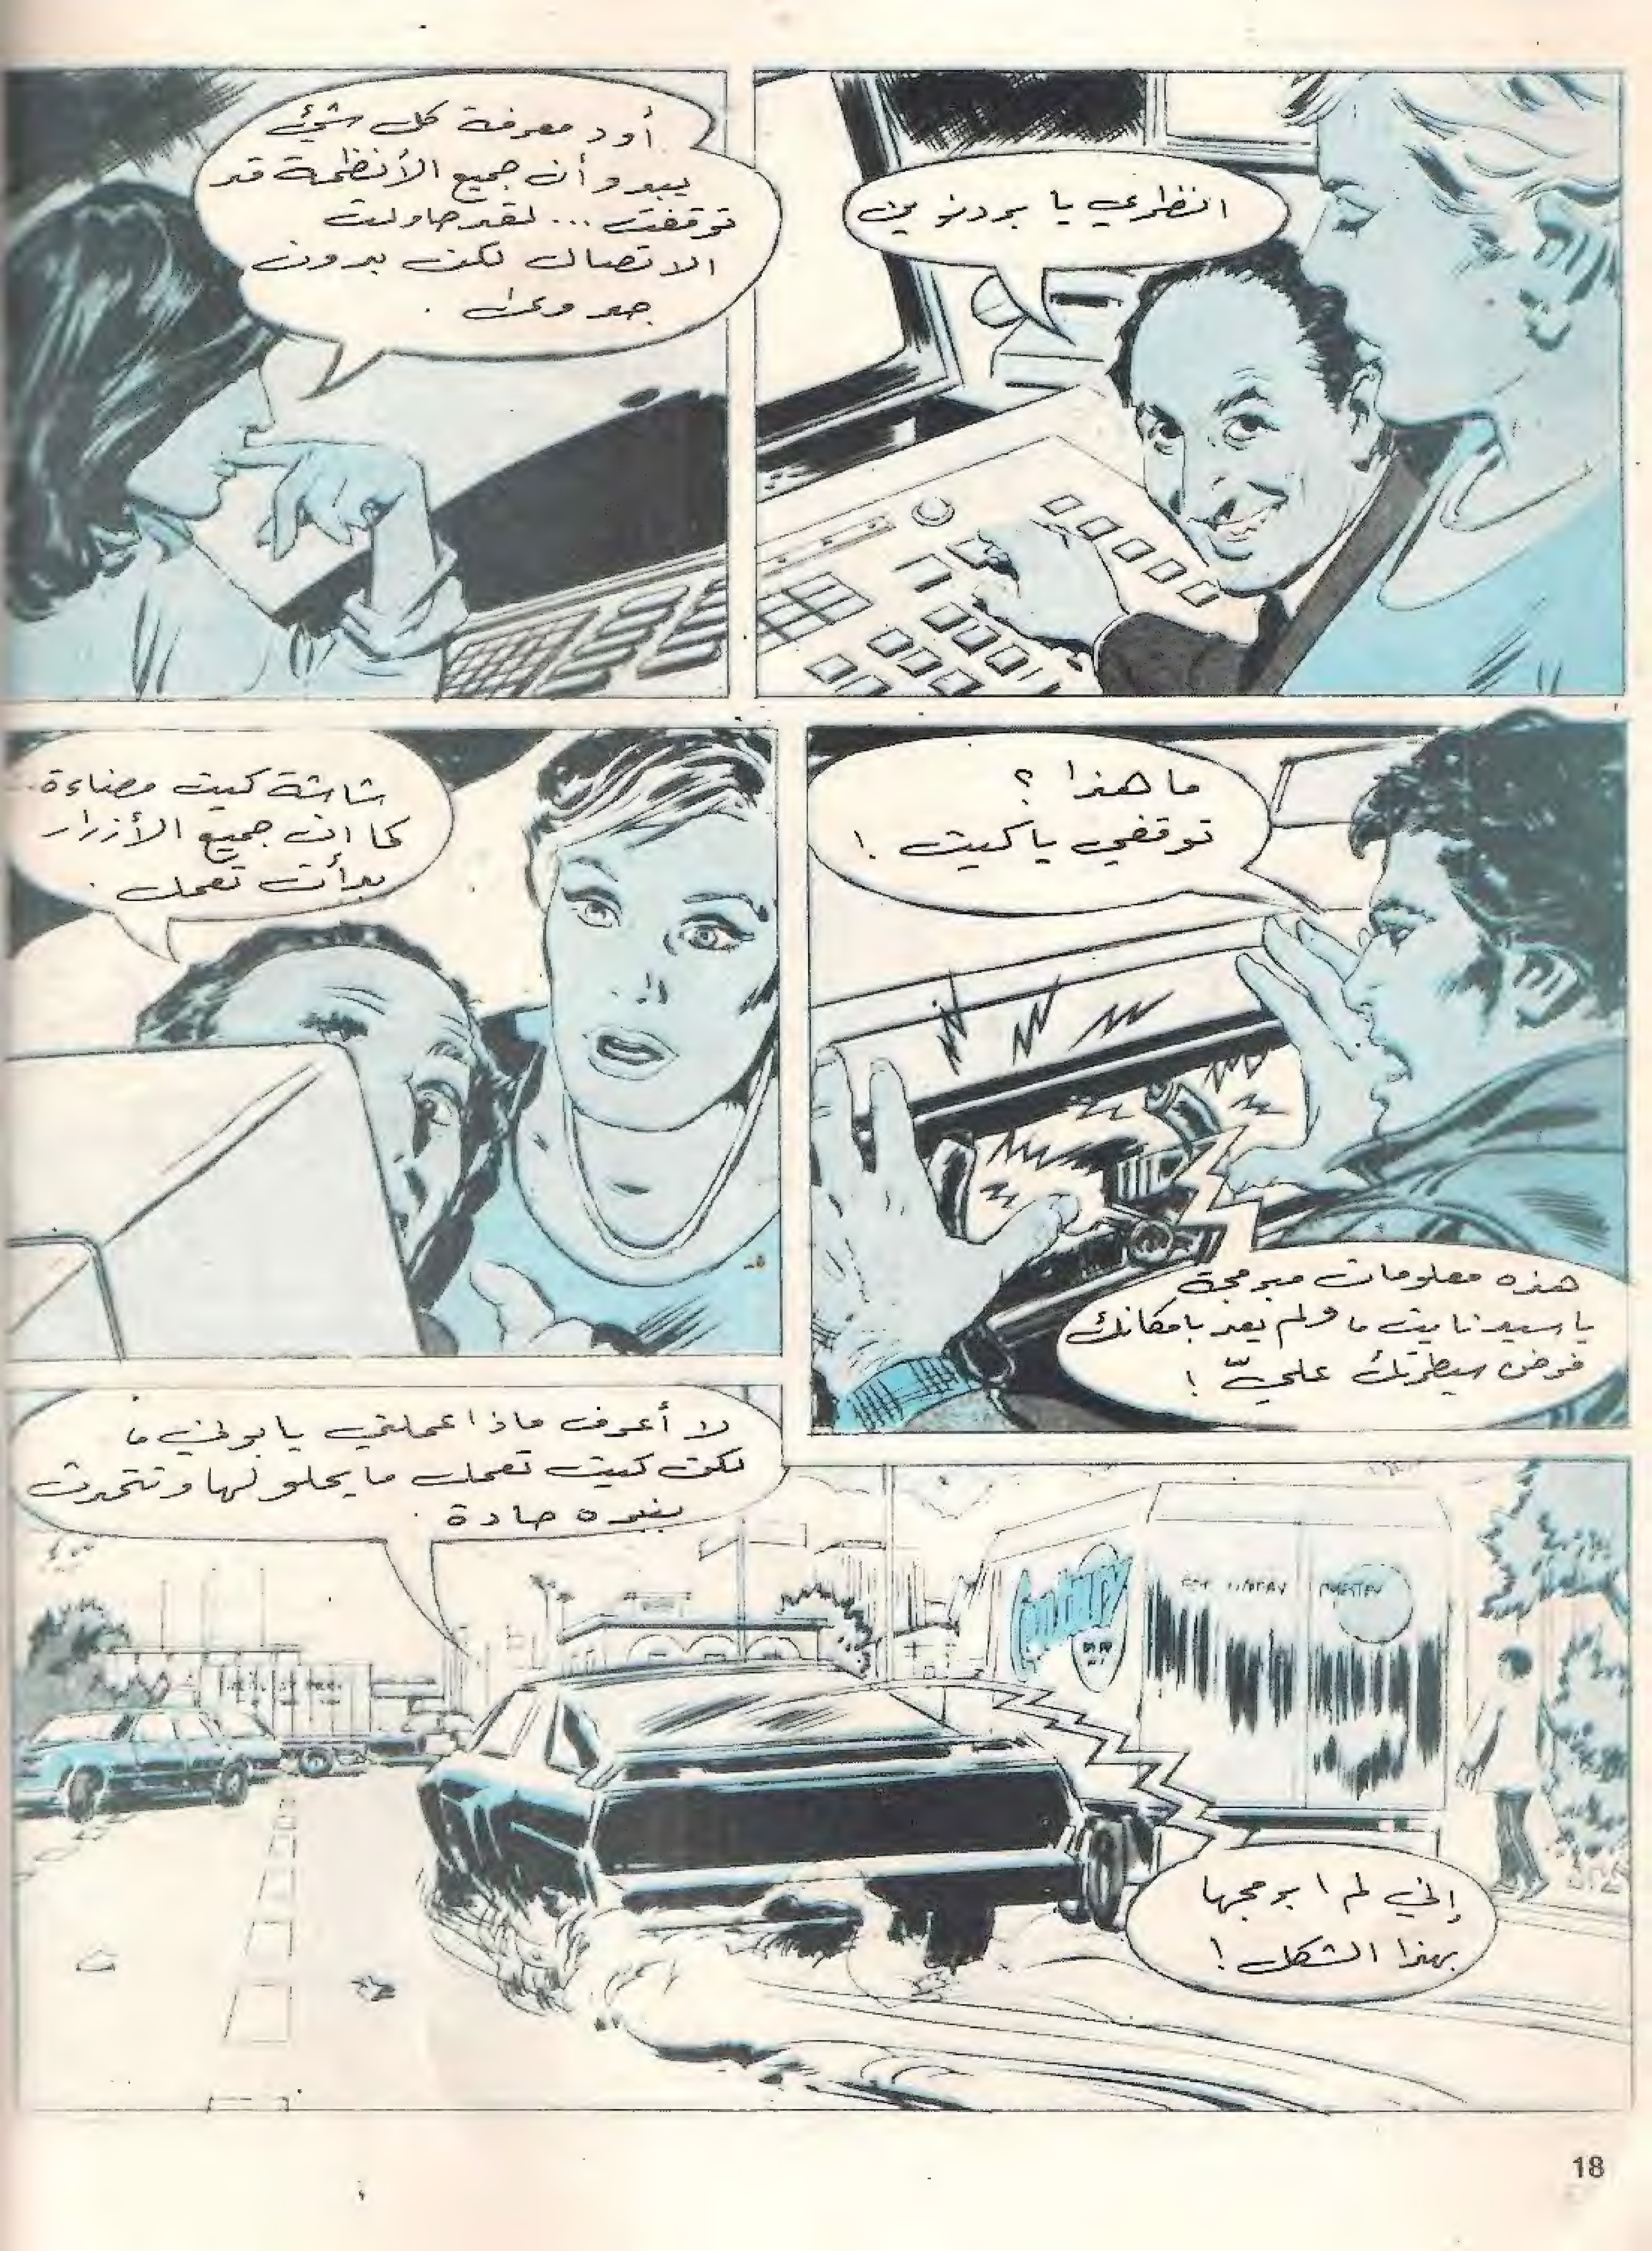 انظري يا بردنوين
أود معرفة كل شئ
يبدو أن جميع الأنظمة قد
توقفت ... لقد حاولت
الاتصال لكن بدون
جدوى .
ما هذا ؟
توقفي يا كيت !
هذه معلومات مبرمجة
يا سيد نايت ، ولم يعد بامكانك
فرض سيطرتك عليّ !
شاشة كيت مضاءة ..
كما ان جميع الأزرار
بدأت تعمل .
لا أعرف ماذا عملتي يا بوني ،
لكن كيت تعمل ما يحلو لها وتتحدث
بنبره حادة .
إني لم ابرمجها
بهذا الشكل !
18